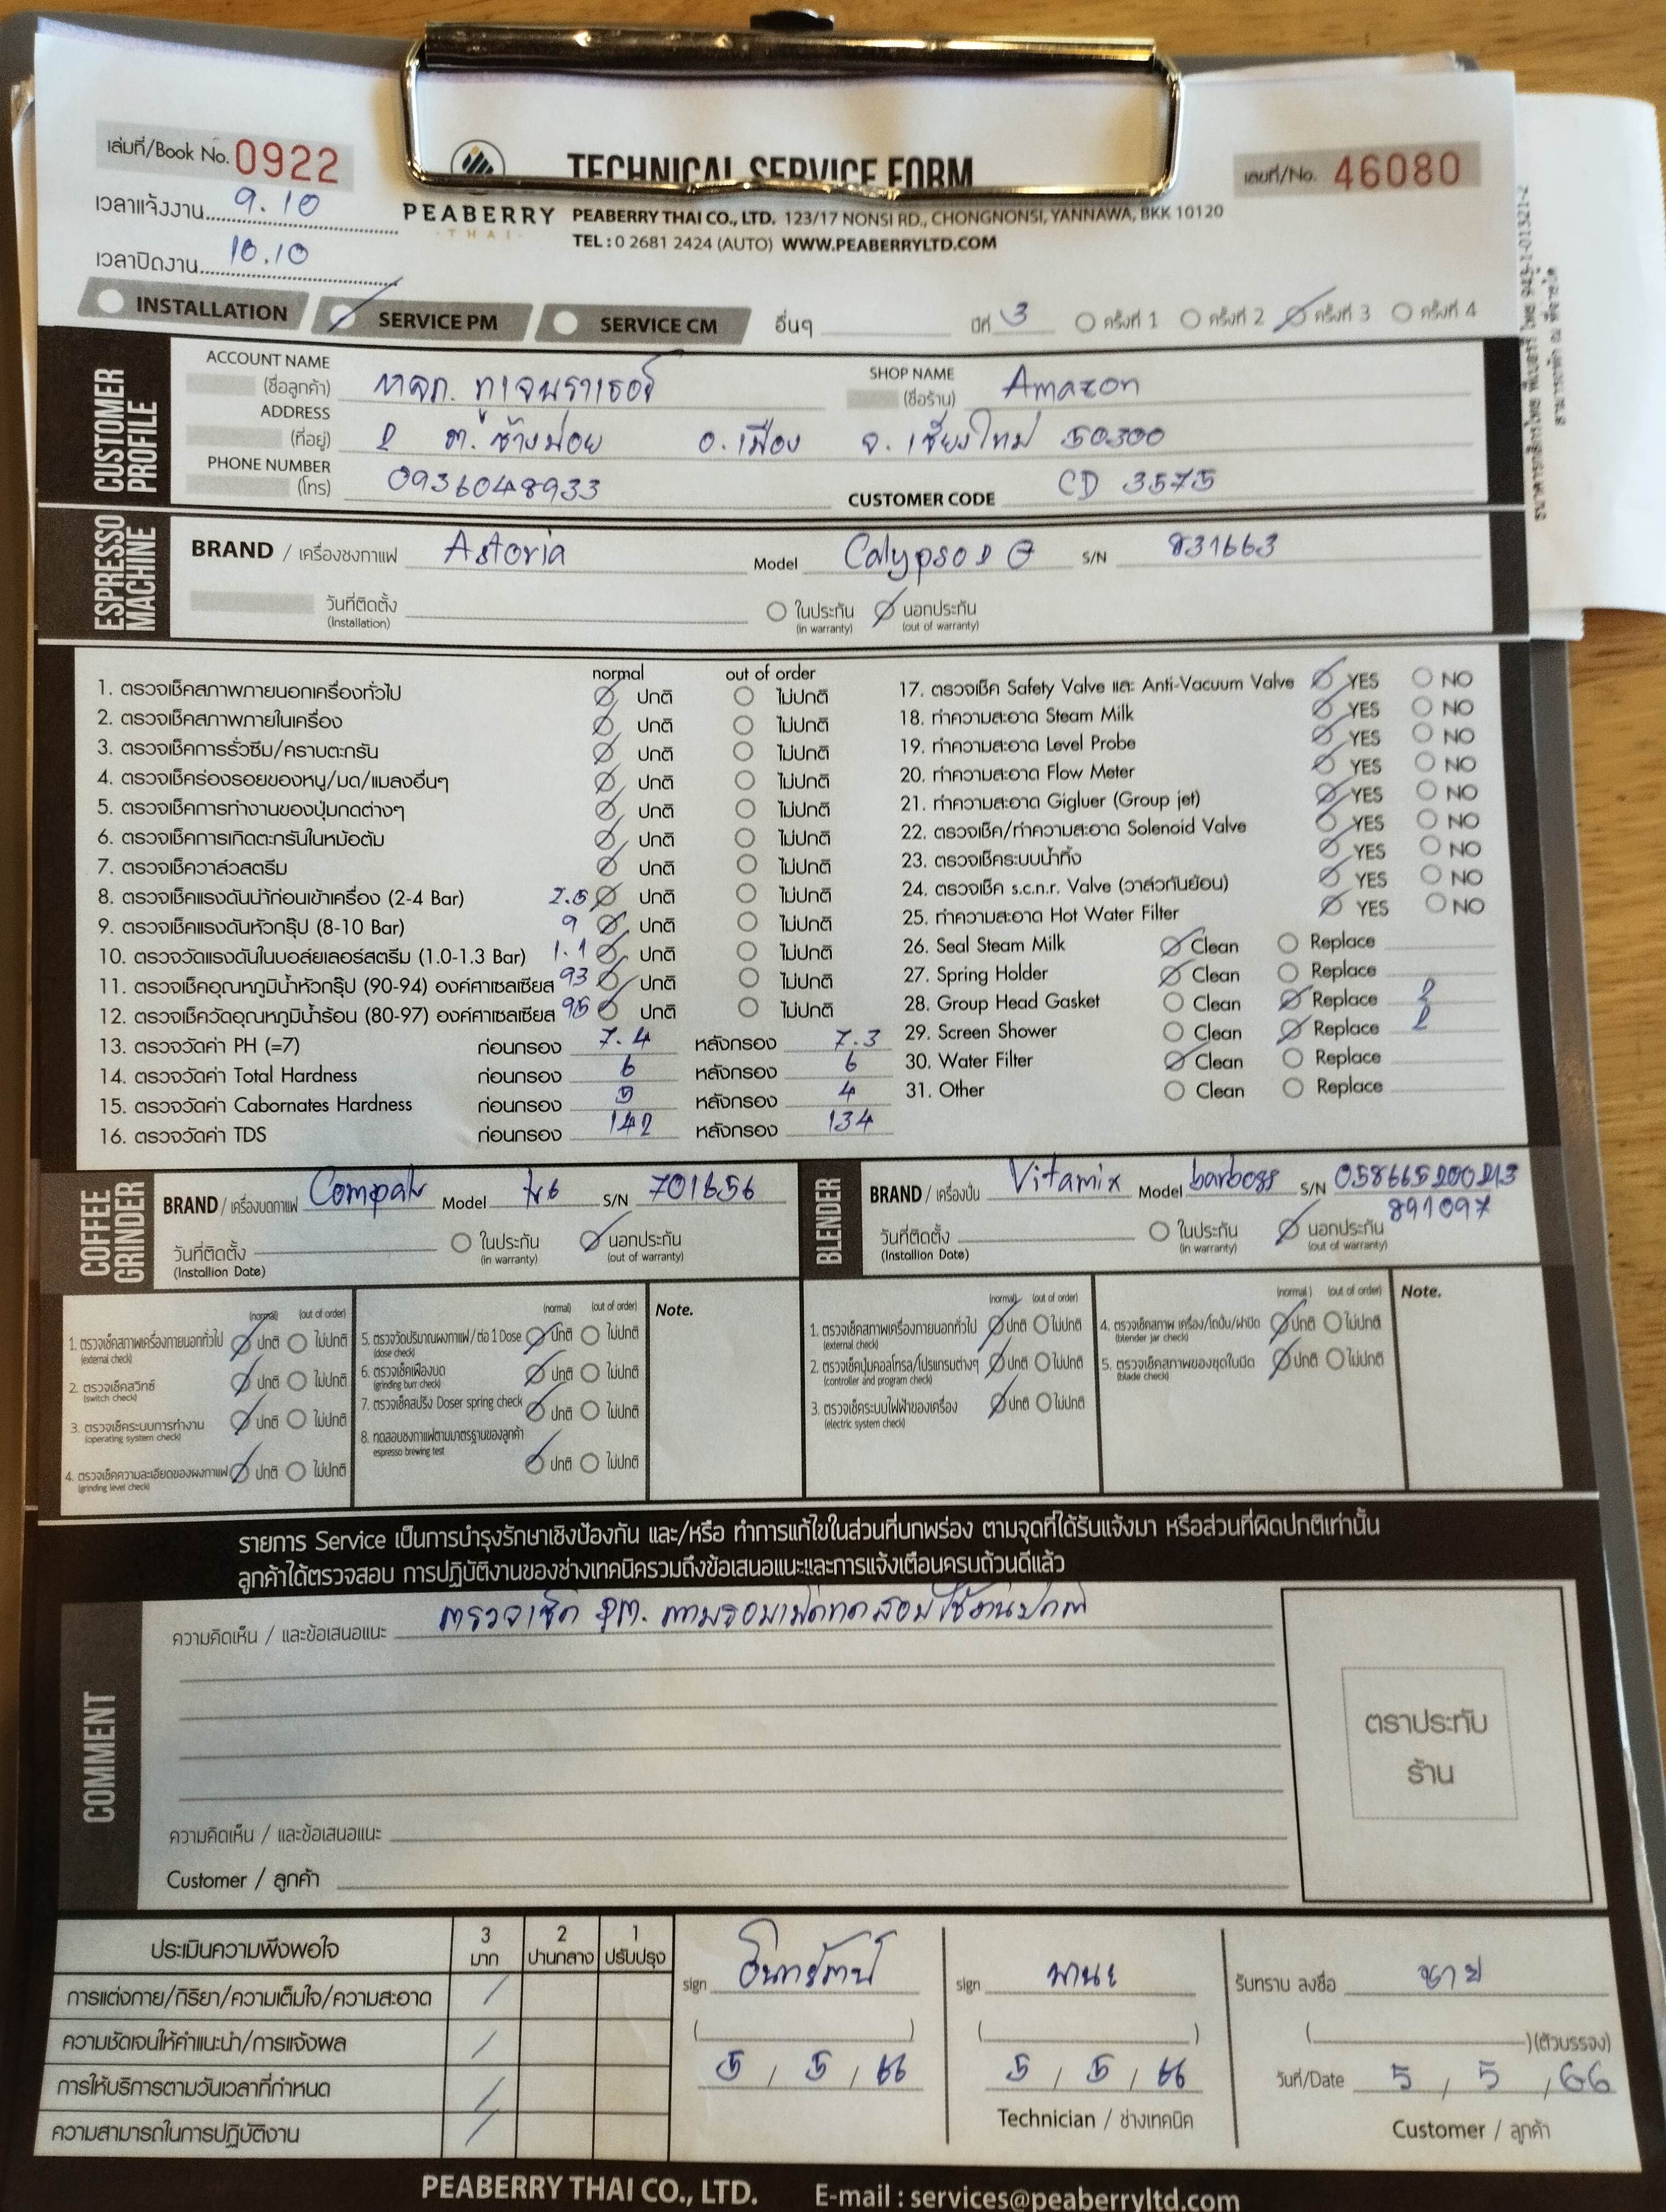 เล่มที่/Book No. 0922
TECHNICAL SERVICE FORM
เลขที่/No. 46080
เวลาแจ้งงาน 9.10
PEABERRY
THAI
PEABERRY THAI CO., LTD. 123/17 NONSI RD., CHONGNONSI, YANNAWA, BKK 10120
TEL : 0 2681 2424 (AUTO) WWW.PEABERRYLTD.COM
เวลาปิดงาน 10.10
INSTALLATION SERVICE PM SERVICE CM อื่นๆ ปีที่ 3 ครั้งที่ 1 ครั้งที่ 2 ครั้งที่ 3 ครั้งที่ 4
CUSTOMER PROFILE
ACCOUNT NAME (ชื่อลูกค้า) หจก.
SHOP NAME (ชื่อร้าน) Amazon
ADDRESS (ที่อยู่) 2 ต.ช้างม่อย อ.เมือง จ.เชียงใหม่ 50300
PHONE NUMBER (โทร) 0936048933
CUSTOMER CODE CD 3575
ESPRESSO MACHINE
BRAND / เครื่องชงกาแฟ Astoria Model Calypso 2 G S/N 831663
วันที่ติดตั้ง (Installation) ในประกัน (in warranty) นอกประกัน (out of warranty)
normal out of order
1. ตรวจเช็คสภาพภายนอกเครื่องทั่วไป ปกติ ไม่ปกติ
2. ตรวจเช็คสภาพภายในเครื่อง ปกติ ไม่ปกติ
3. ตรวจเช็คการรั่วซึม/คราบตะกรัน ปกติ ไม่ปกติ
4. ตรวจเช็คร่องรอยของหนู/มด/แมลงอื่นๆ ปกติ ไม่ปกติ
5. ตรวจเช็คการทำงานของปุ่มกดต่างๆ ปกติ ไม่ปกติ
6. ตรวจเช็คการเกิดตะกรันในหม้อต้ม ปกติ ไม่ปกติ
7. ตรวจเช็ควาล์วสตรีม ปกติ ไม่ปกติ
8. ตรวจเช็คแรงดันน้ำก่อนเข้าเครื่อง (2-4 Bar) ปกติ ไม่ปกติ
9. ตรวจเช็คแรงดันหัวกรุ๊ป (8-10 Bar) 9 ปกติ ไม่ปกติ
10. ตรวจวัดแรงดันในบอล์ยเลอร์สตรีม (1.0-1.3 Bar) 1.1 ปกติ ไม่ปกติ
11. ตรวจเช็คอุณหภูมิน้ำหัวกรุ๊ป (90-94) องค์ศาเซลเซียส 93 ปกติ ไม่ปกติ
12. ตรวจเช็ควัดอุณหภูมิน้ำร้อน (80-97) องค์ศาเซลเซียส 95 ปกติ ไม่ปกติ
13. ตรวจวัดค่า PH (=7) ก่อนกรอง 7.4 หลังกรอง 7.3
14. ตรวจวัดค่า Total Hardness ก่อนกรอง 6 หลังกรอง 6
15. ตรวจวัดค่า Cabornates Hardness ก่อนกรอง 5 หลังกรอง 4
16. ตรวจวัดค่า TDS ก่อนกรอง 142 หลังกรอง 134
17. ตรวจเช็ค Safety Valve และ Anti-Vacuum Valve YES NO
18. ทำความสะอาด Steam Milk YES NO
19. ทำความสะอาด Level Probe YES NO
20. ทำความสะอาด Flow Meter YES NO
21. ทำความสะอาด Gigluer (Group jet) YES NO
22. ตรวจเช็ค/ทำความสะอาด Solenoid Valve YES NO
23. ตรวจเช็คระบบน้ำทิ้ง YES NO
24. ตรวจเช็ค s.c.n.r. Valve (วาล์วกันย้อน) YES NO
25. ทำความสะอาด Hot Water Filter YES NO
26. Seal Steam Milk Clean Replace
27. Spring Holder Clean Replace
28. Group Head Gasket Clean Replace 2
29. Screen Shower Clean Replace 2
30. Water Filter Clean Replace
31. Other Clean Replace
COFFEE GRINDER
BRAND / เครื่องบดกาแฟ Model k6 S/N 701656
วันที่ติดตั้ง (Installion Date) ในประกัน (in warranty) นอกประกัน (out of warranty)
BLENDER
BRAND / เครื่องปั่น Vitamix Model barboss S/N 058665200213
891097
วันที่ติดตั้ง (Installion Date) ในประกัน (in warranty) นอกประกัน (out of warranty)
(normal) (out of order)
1. ตรวจเช็คสภาพเครื่องภายนอกทั่วไป ปกติ ไม่ปกติ
(external check)
2. ตรวจเช็คสวิทซ์ ปกติ ไม่ปกติ
(switch check)
3. ตรวจเช็คระบบการทำงาน ปกติ ไม่ปกติ
(operating system check)
4. ตรวจเช็คความละเอียดของผงกาแฟ ปกติ ไม่ปกติ
(grinding level check)
(normal) (out of order)
5. ตรวจวัดปริมาณผงกาแฟ / ต่อ 1 Dose ปกติ ไม่ปกติ
(dose check)
6. ตรวจเช็คเฟืองบด ปกติ ไม่ปกติ
(grinding burr check)
7. ตรวจเช็คสปริง Doser spring check ปกติ ไม่ปกติ
8. ทดสอบชงกาแฟตามมาตรฐานของลูกค้า
espresso brewing test ปกติ ไม่ปกติ
Note.
(normal) (out of order)
1. ตรวจเช็คสภาพเครื่องภายนอกทั่วไป ปกติ ไม่ปกติ
(external check)
2. ตรวจเช็คปุ่มคอลโทรล/โปรแกรมต่างๆ ปกติ ไม่ปกติ
(controller and program check)
3. ตรวจเช็คระบบไฟฟ้าของเครื่อง ปกติ ไม่ปกติ
(electric system check)
(normal) (out of order)
4. ตรวจเช็คสภาพ เครื่อง/โถปั่น/ฝาปิด ปกติ ไม่ปกติ
(blender jar check)
5. ตรวจเช็คสภาพของชุดใบมีด ปกติ ไม่ปกติ
(blade check)
Note.
รายการ Service เป็นการบำรุงรักษาเชิงป้องกัน และ/หรือ ทำการแก้ไขในส่วนที่บกพร่อง ตามจุดที่ได้รับแจ้งมา หรือส่วนที่ผิดปกติเท่านั้น
ลูกค้าได้ตรวจสอบ การปฏิบัติงานของช่างเทคนิครวมถึงข้อเสนอแนะและการแจ้งเตือนครบถ้วนดีแล้ว
COMMENT
ความคิดเห็น / และข้อเสนอแนะ ตรวจเช็ค PM. ทดสอบใช้งานปกติ
ตราประทับ
ร้าน
ความคิดเห็น / และข้อเสนอแนะ
Customer / ลูกค้า
ประเมินความพึงพอใจ 3 มาก 2 ปานกลาง 1 ปรับปรุง
การแต่งกาย/กิริยา/ความเต็มใจ/ความสะอาด /
ความชัดเจนให้คำแนะนำ/การแจ้งผล /
การให้บริการตามวันเวลาที่กำหนด /
ความสามารถในการปฏิบัติงาน /
sign
5 / 5 / 66
sign มานะ
5 / 5 / 66
Technician / ช่างเทคนิค
รับทราบ ลงชื่อ
(ตัวบรรจง)
วันที่/Date 5 / 5 / 66
Customer / ลูกค้า
PEABERRY THAI CO., LTD. E-mail : services@peaberryltd.com